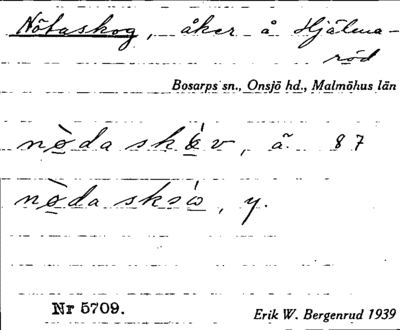 Nötaskog, åker å Hjälma-
röd
Bosarps sn., Onsjö hd., Malmöhus län
nò̤da skò̤v, ã. 87
nò̤da , y.
Nr 5709.
Erik W. Bergenrud 1939